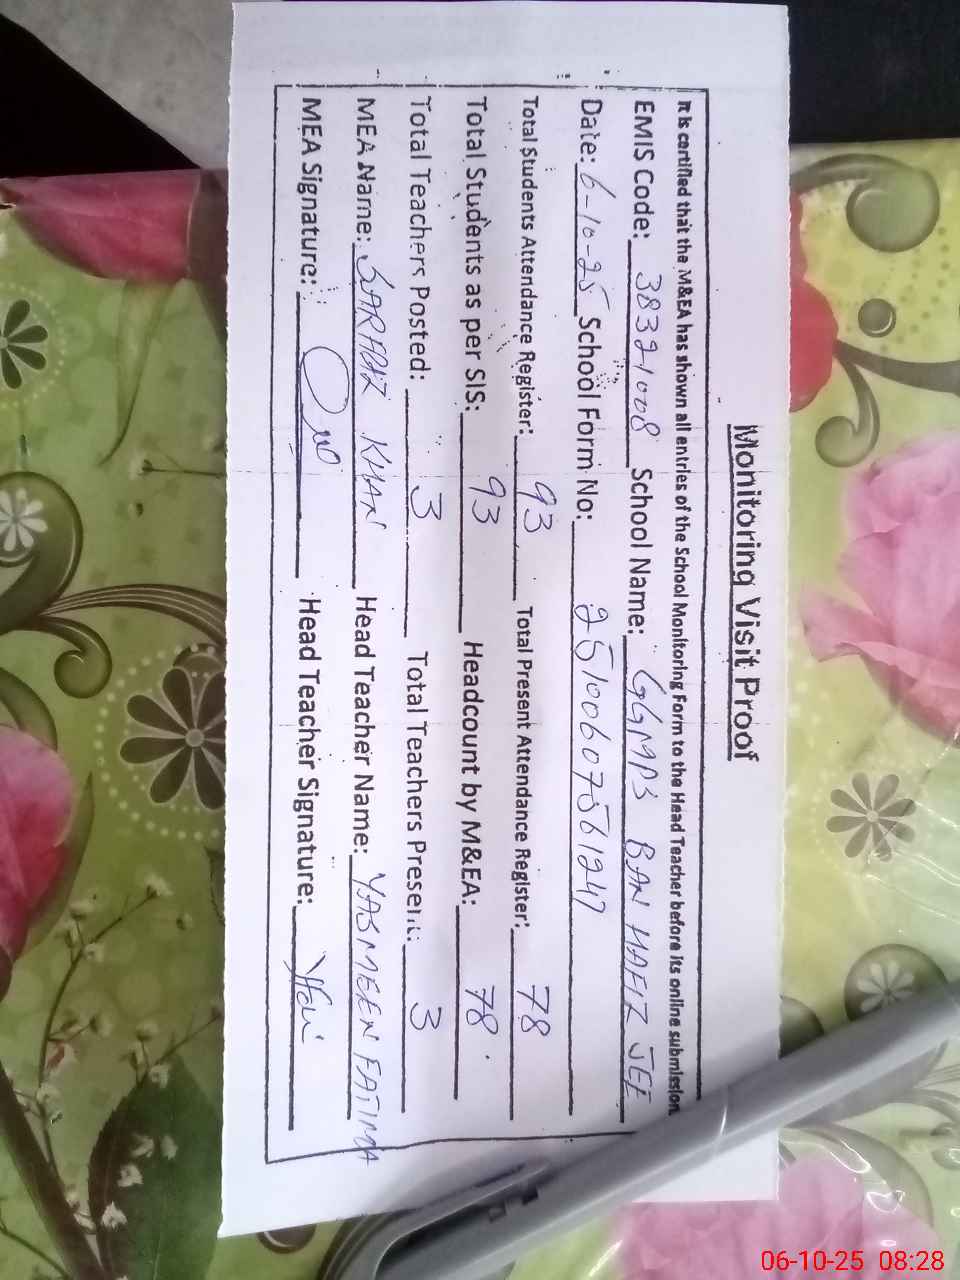 Monitoring Visit Proof
It is certified that the M&EA has shown all entries of the School Monitoring Form to the Head Teacher before its online submission
EMIS Code: 38321008 School Name: GGMPS BAN HAFIZ JEE
Date: 6-10-25 School Form No: 25100607561247
Total Students Attendance Register: 93 Total Present Attendance Register: 78
Total Students as per SIS: 93 Headcount by M&EA: 78
Total Teachers Posted: 3 Total Teachers Present: 3
MEA Name: SARFRAZ KHAN Head Teacher Name: YASMEEN FATIMA
MEA Signature: Head Teacher Signature:
06-10-25 08:28